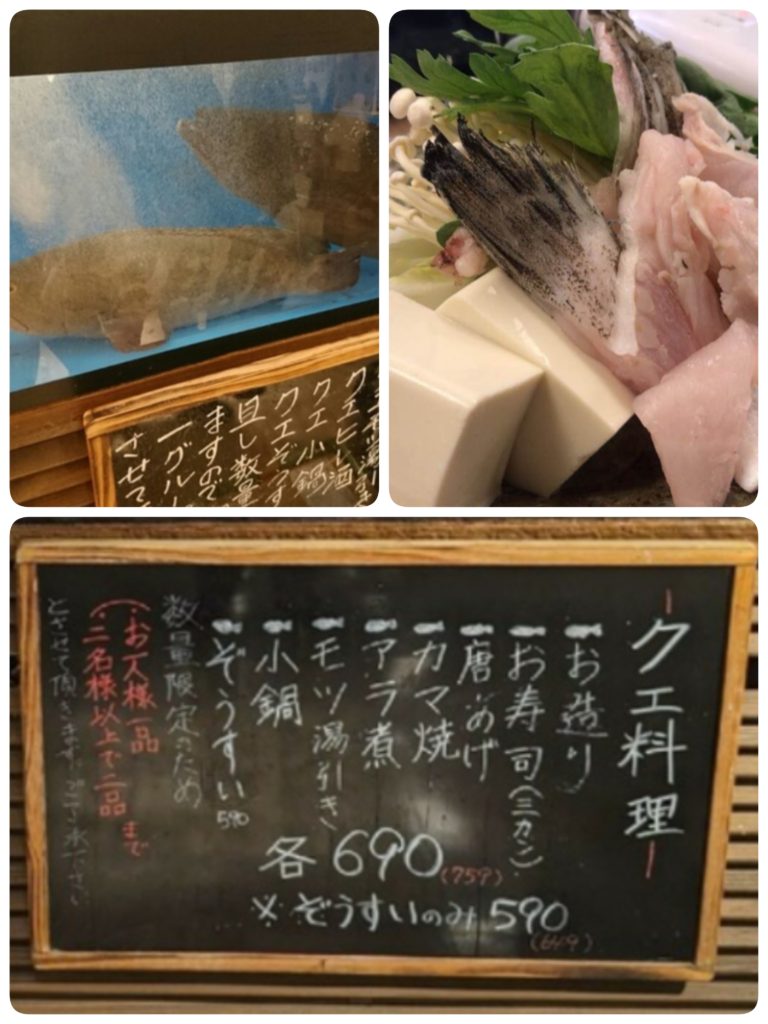 クエヒレ酒
クエ小鍋
クエぞうす
且し数量
ますので
一グルー
させて
クエ料理
お造り
お寿司(三カン)
唐あげ
カマ焼
アラ煮
モツ湯引き
小鍋
ぞうすい590
各690(759)
※ぞうすいのみ590
(649)
数量限定のため
(・お一人様一品
・二名様以上で二品まで
とさせて頂きます。ご了承下さい